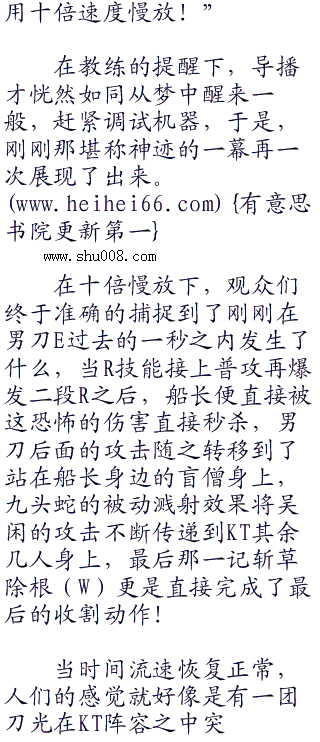 用十倍速度慢放！”
在教练的提醒下，导播
才恍然如同从梦中醒来一
般，赶紧调试机器，于是，
刚刚那堪称神迹的一幕再一
次展现了出来。
(www.heihei66.com){有意思
书院更新第一}
www.shu008.com
在十倍慢放下，观众们
终于准确的捕捉到了刚刚在
男刀E过去的一秒之内发生了
什么，当R技能接上普攻再爆
发二段R之后，船长便直接被
这恐怖的伤害直接秒杀，男
刀后面的攻击随之转移到了
站在船长身边的盲僧身上，
九头蛇的被动溅射效果将吴
闲的攻击不断传递到KT其余
几人身上，最后那一记斩草
除根（W）更是直接完成了最
后的收割动作！
当时间流速恢复正常，
人们的感觉就好像是有一团
刀光在KT阵容之中突